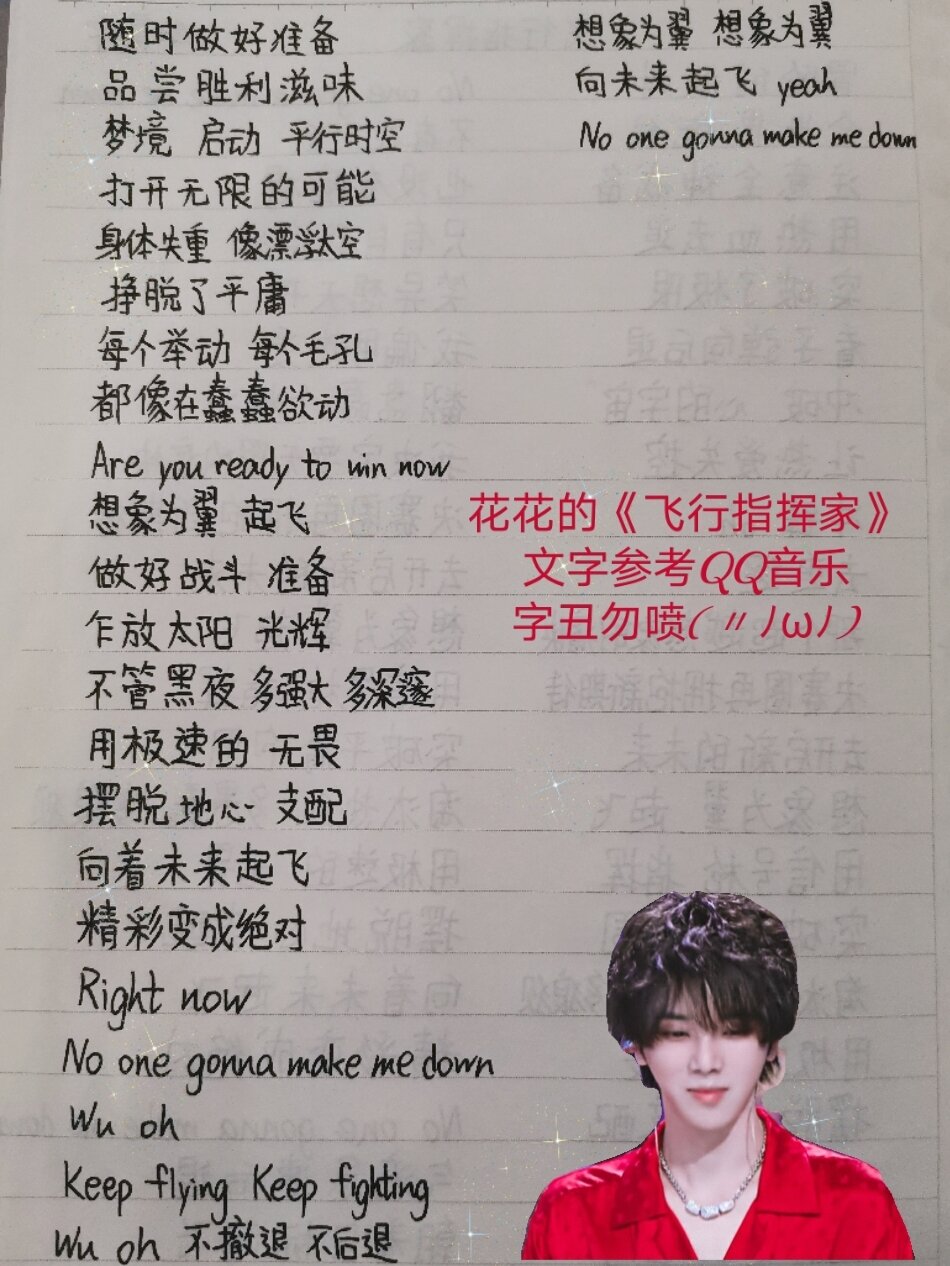 随时做好准备
品尝胜利滋味
梦境 启动 平行时空
打开无限的可能
身体失重 像漂浮太空
挣脱了平庸
每个举动 每个毛孔
都像在蠢蠢欲动
Are you ready to win now
想象为翼 起飞
做好战斗 准备
乍放太阳 光辉
不管黑夜 多强大 多深邃
用极速的 无畏
摆脱地心 支配
向着未来起飞
精彩变成绝对
Right now
No one gonna make me down
Wu oh
Keep flying Keep fighting
Wu oh 不撤退 不后退
想象为翼 想象为翼
向未来起飞 yeah
No one gonna make me down
花花的《飞行指挥家》
文字参考QQ音乐
字丑勿喷(〃ﾉωﾉ)